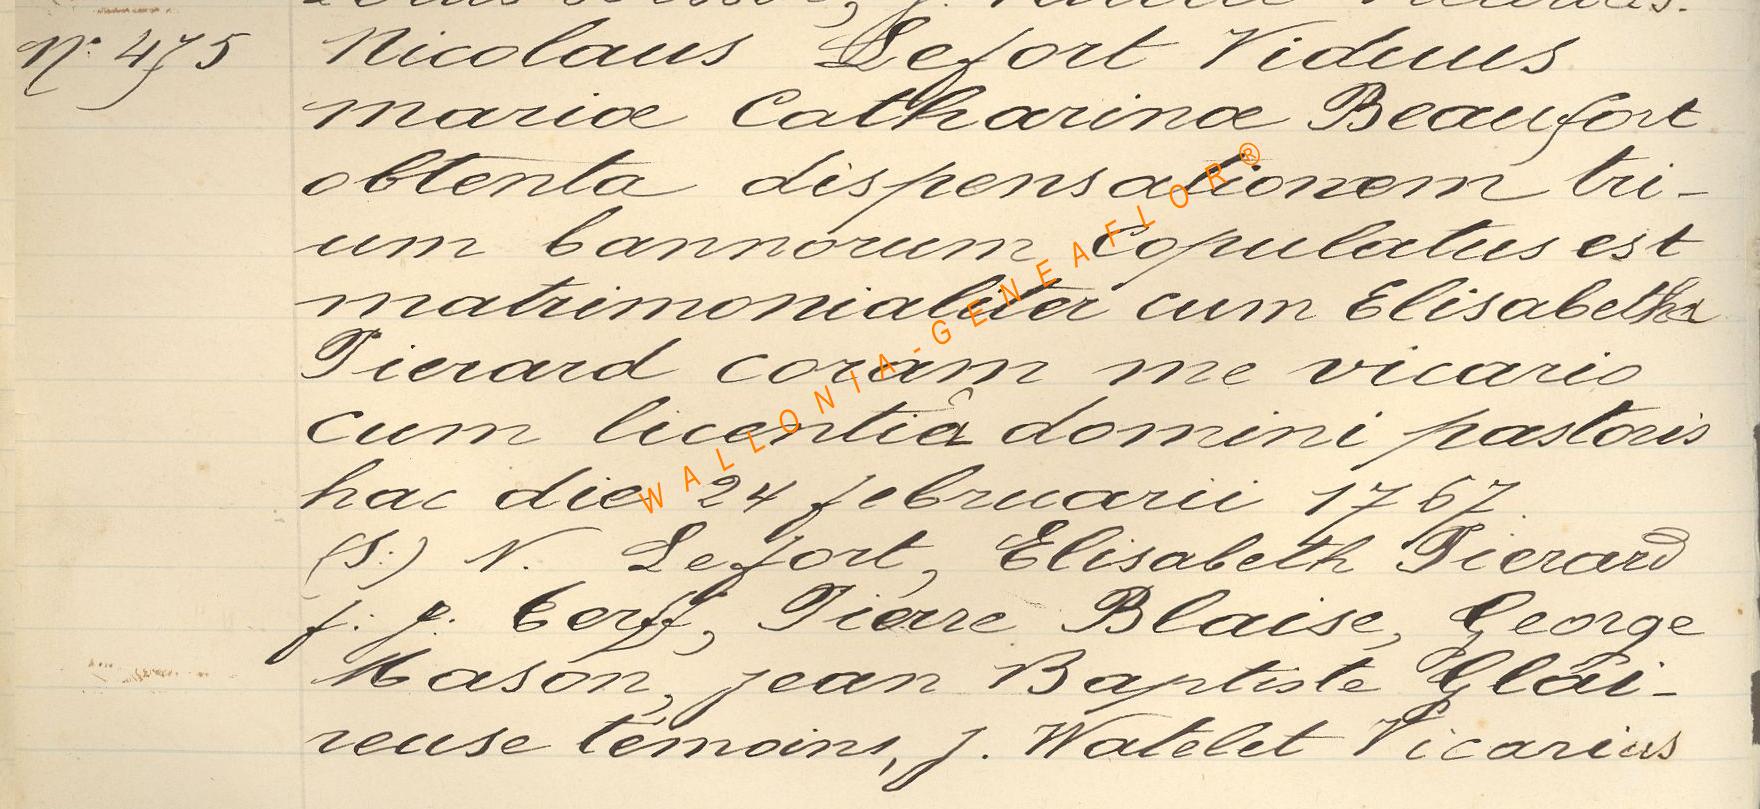 N° 475 Nicolaus Lefort Viduus
mariæ Catharinæ Beaufort
obtenta dispensationem tri-
um bannorum Copulatus est
matrimonialiter cum Elisabetha
Pierard coram me vicario
cum licentiâ domini pastoris
hac die 24 februarii 1767
(S:) N. Lefort, Elisabeth Pierard
Cerff, Pierre Blaise, George
Mason, jean Baptiste Glai-
reuse témoins, J. Watelet Vicarius
WALLONIA-GENEAFLOR®